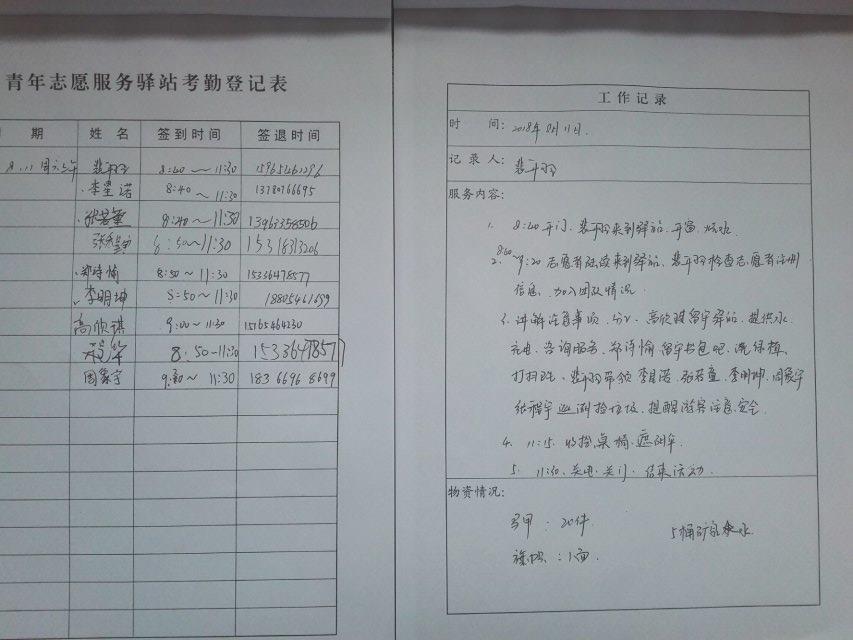 青年志愿服务驿站考勤登记表
期 姓名 签到时间 签退时间
8.11 周六上午 裴羽 8:40～11:30 15965461296
李星诺 8:40～11:30 13780766695
张若童 8:40～11:30 13963358506
8:50～11:30 15318313206
郑诗愉 8:50～11:30 15336478577
李明坤 8:50～11:30 18805461699
高欣琪 9:00～11:30 15165464230
8:50-11:30 15336478577
周家宇 9:00～11:30 183 6696 8699
工作记录
时 间: 2018年8月11日.
记录人:
服务内容:
1. 8:40 开门、来到驿站.开窗.
2. 8:40～9:20 志愿者陆续来到驿站、检查志愿者注册
信息、加入团队情况.
3. 讲解注意事项、分工、高欣琪留守驿站.提供水.
充电.咨询服务.郑诗愉留守书包吧.浇绿植.
打扫卫生、带领李星诺.张若童.李明坤.周家宇
巡湖捡垃圾.提醒游客注意安全.
4. 11:15. 收拾桌椅.遮阳伞.
5. 11:30.关电.关门.结束活动.
物资情况:
马甲:20件. 5桶矿泉水
旗帜:1面.